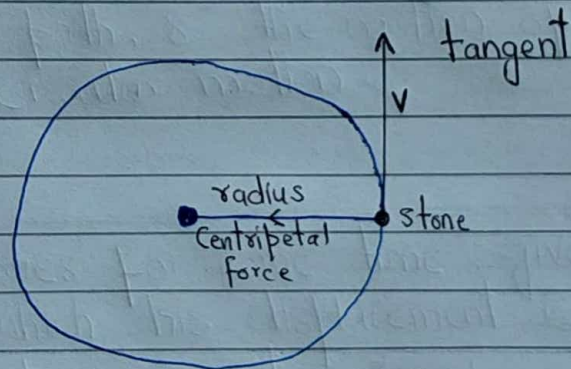 tangent
V
radius
stone
Centripetal
force